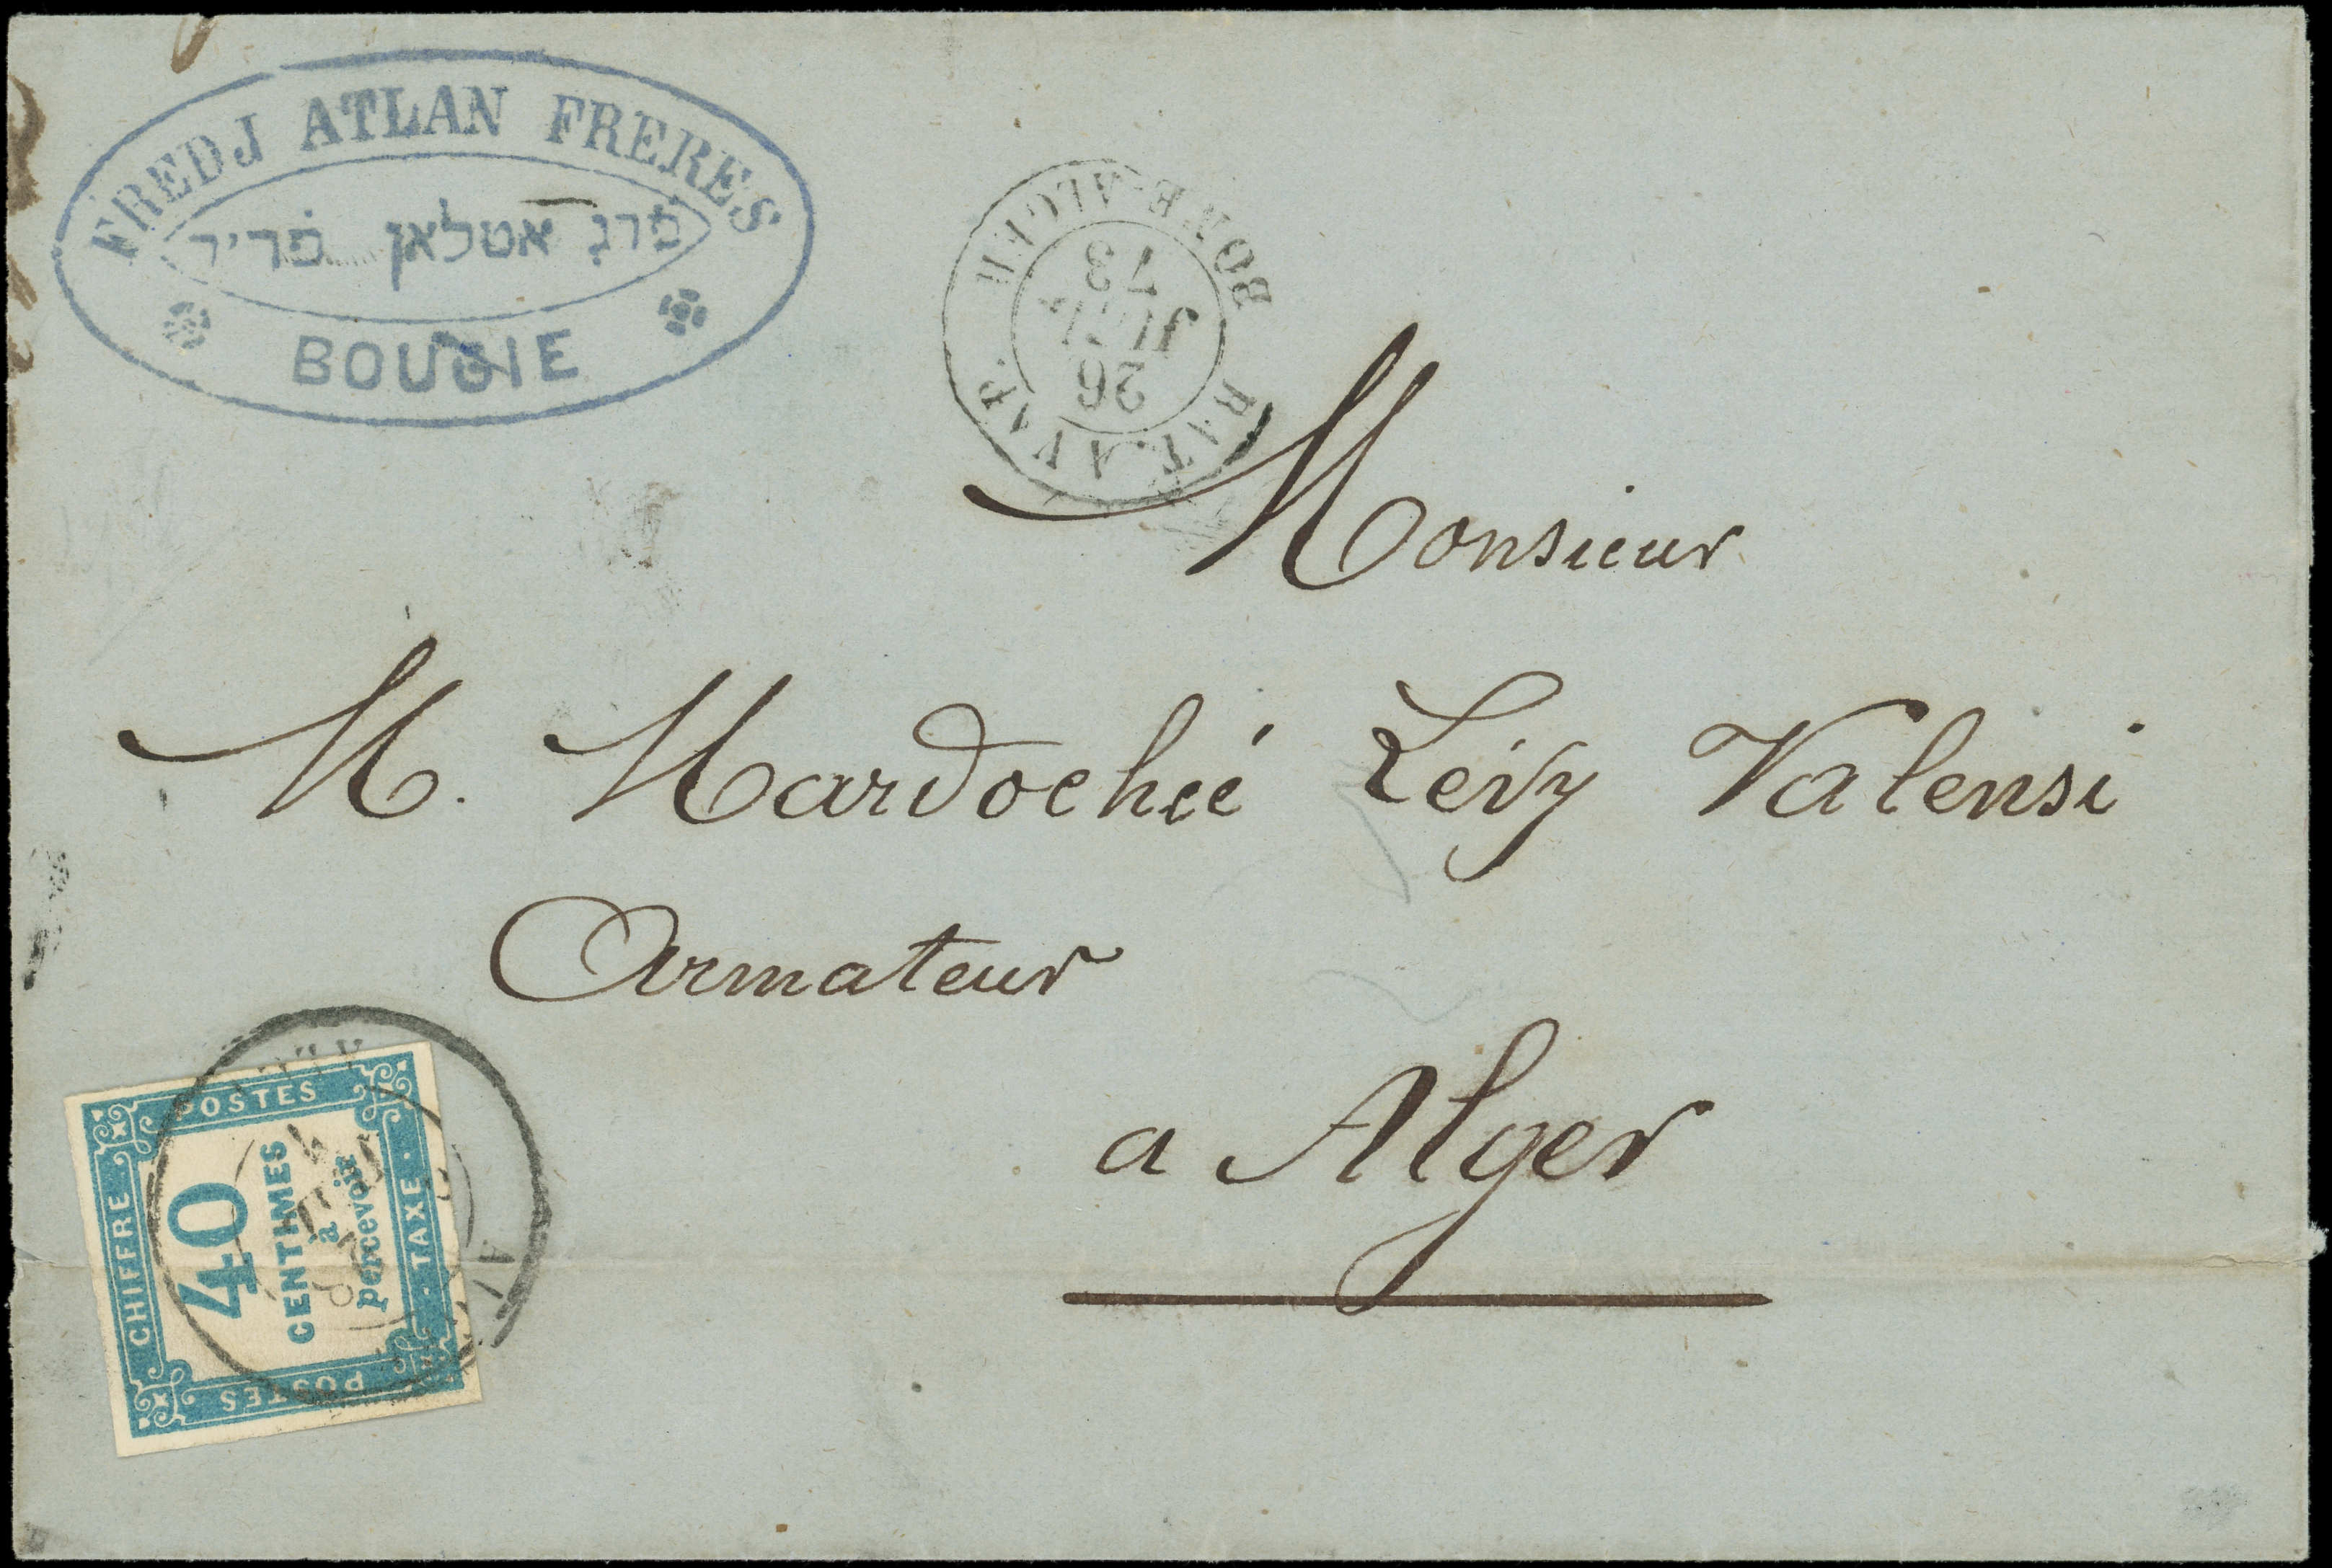 FREDJ ATLAN FRERES
פרג אטלאן פריר
BOUGIE
BONE-ALGER
BAT. A VAP.
26
JUIL
73
Monsieur
M. Mardochée Lévy Valensi
Armateur
a Alger
POSTES
CHIFFRE
40
CENTIMES
à
percevoir
TAXE
POSTES